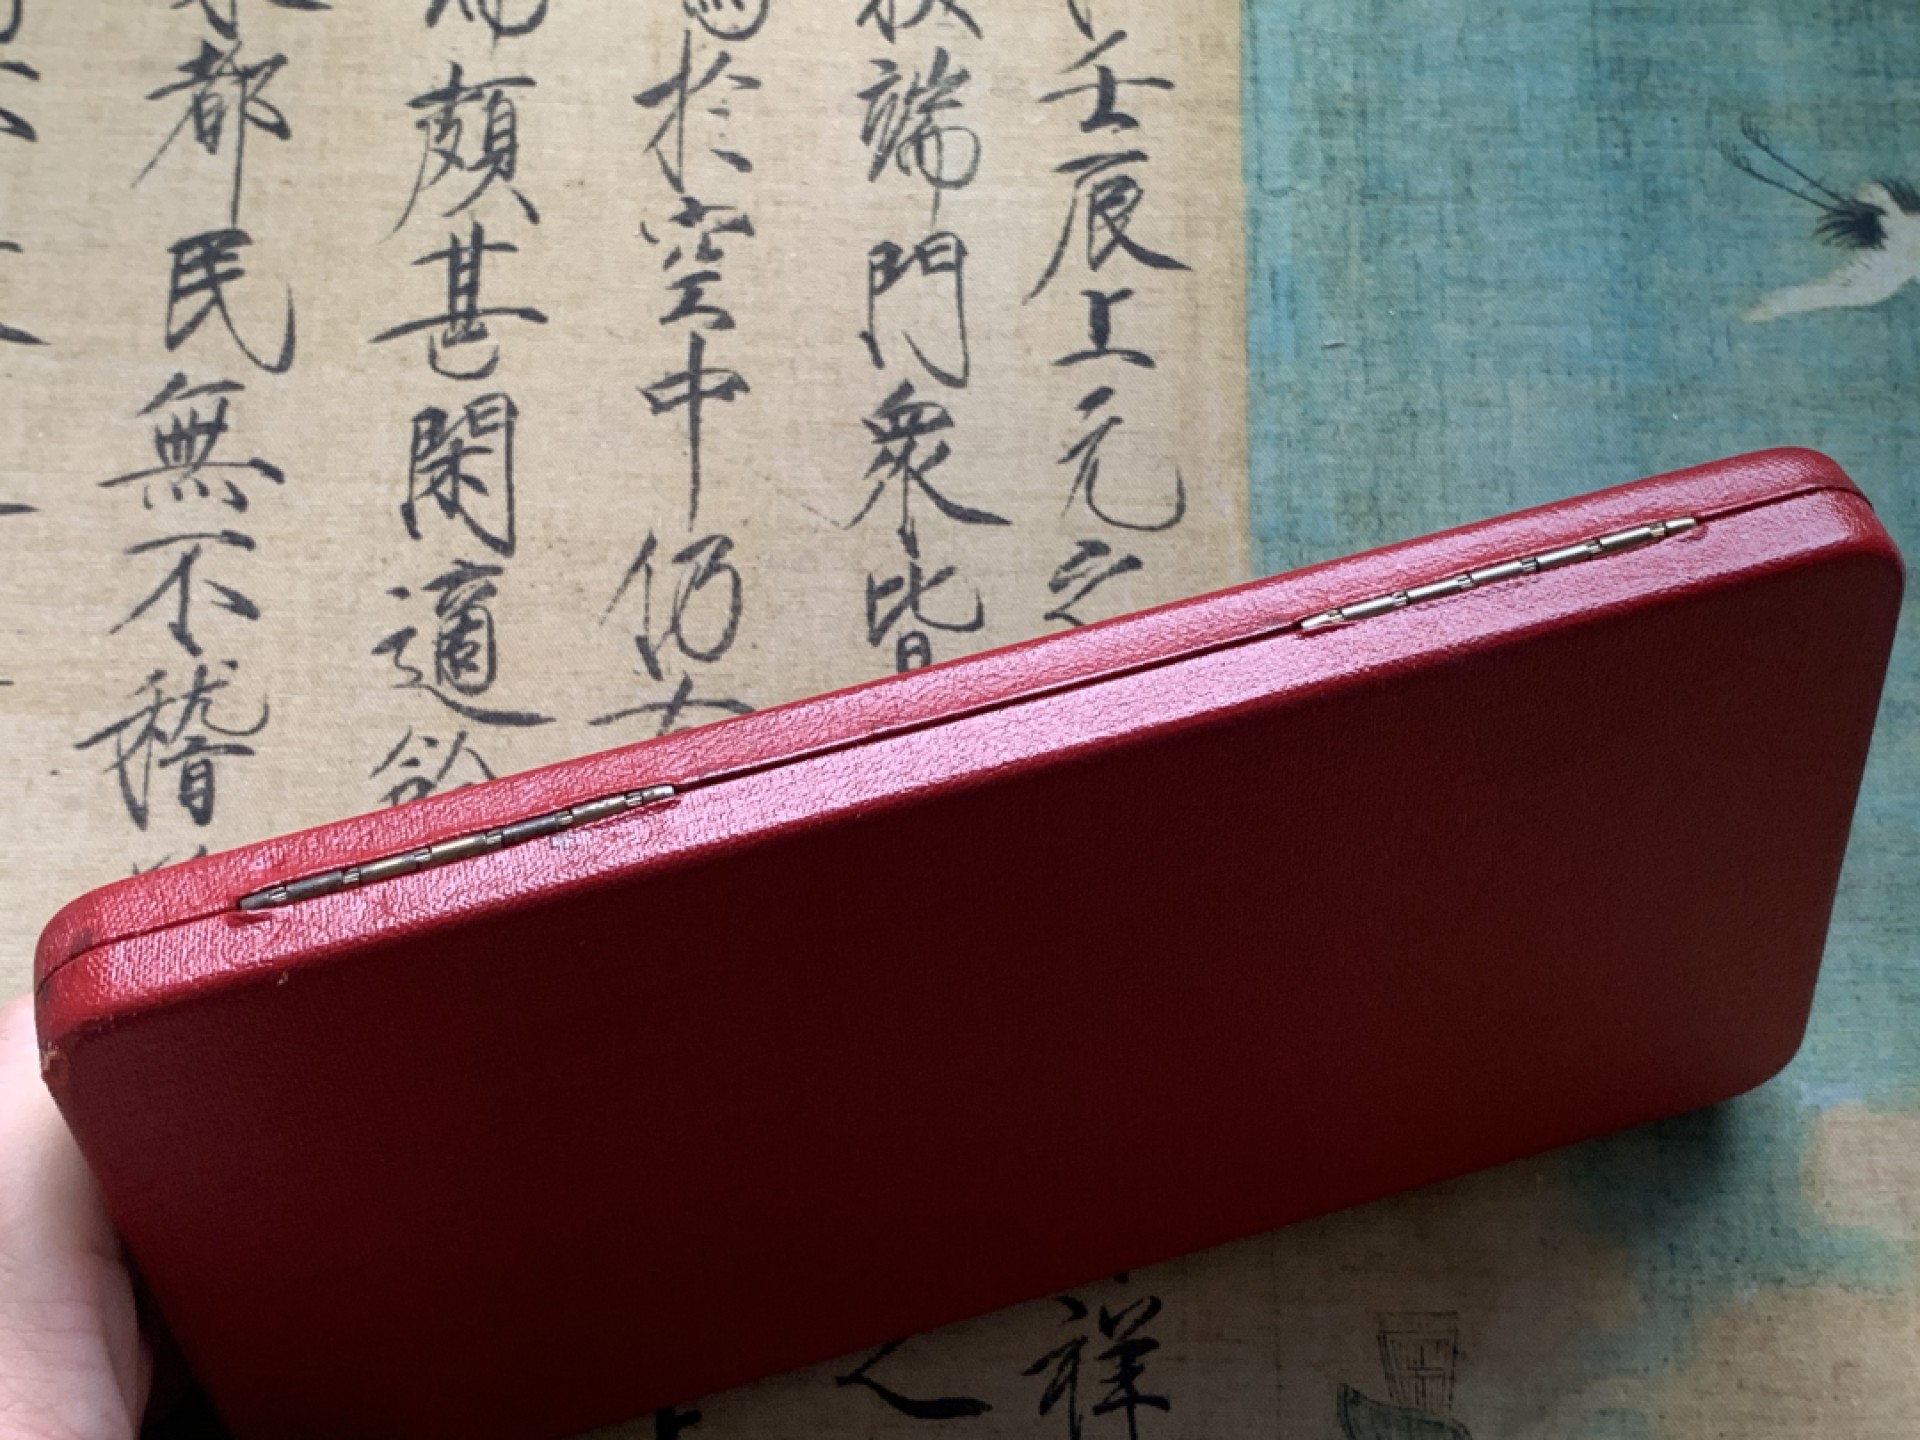 壬辰上元之 祥
端門眾皆 之
於空中仍
頗甚閑適餘
都民無不稽